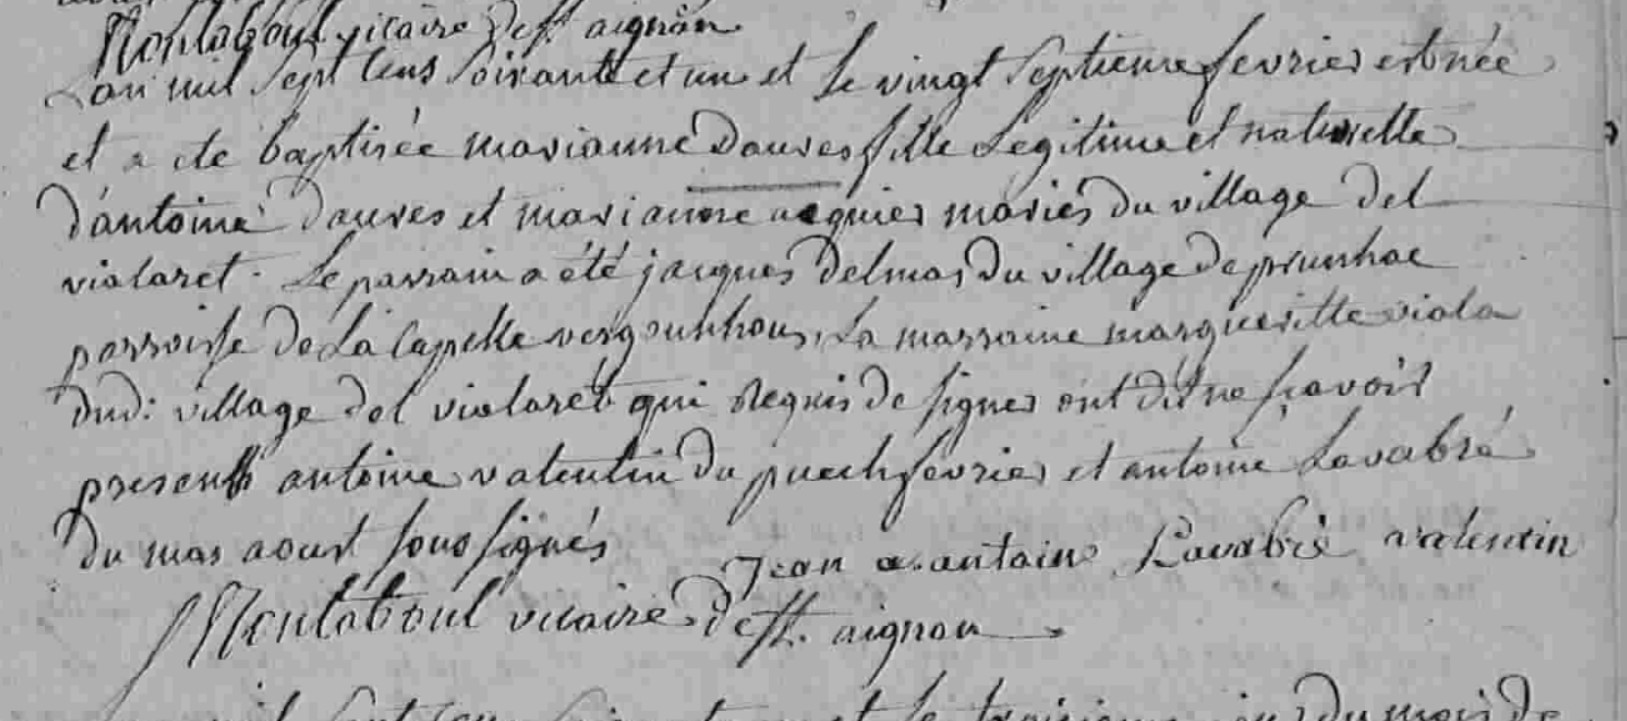 Montaboul vicaire de st. aignan
L'an mil sept cens soixante et un et le vingt septieme fevrier est née
et a ete baptisée marianne Dauves fille Legitime et naturelle
d'antoine dauves et marianne acquier mariés du village del
vialaret. Le parrain a été jacques Delmas du village de prunhac
parroisse de La Capelle vergounhous, La marraine margueritte viala
dud: village del vialaret qui requis de signer ont dit ne scavoir
presents antoine valentin du puech fevrier et antoine Lavabre
du mas aoust sous signés Jean antoin Lavabre valentin
Montaboul vicaire de st. aignan
mil sept cens soixante et un et le troisieme jour du mois de